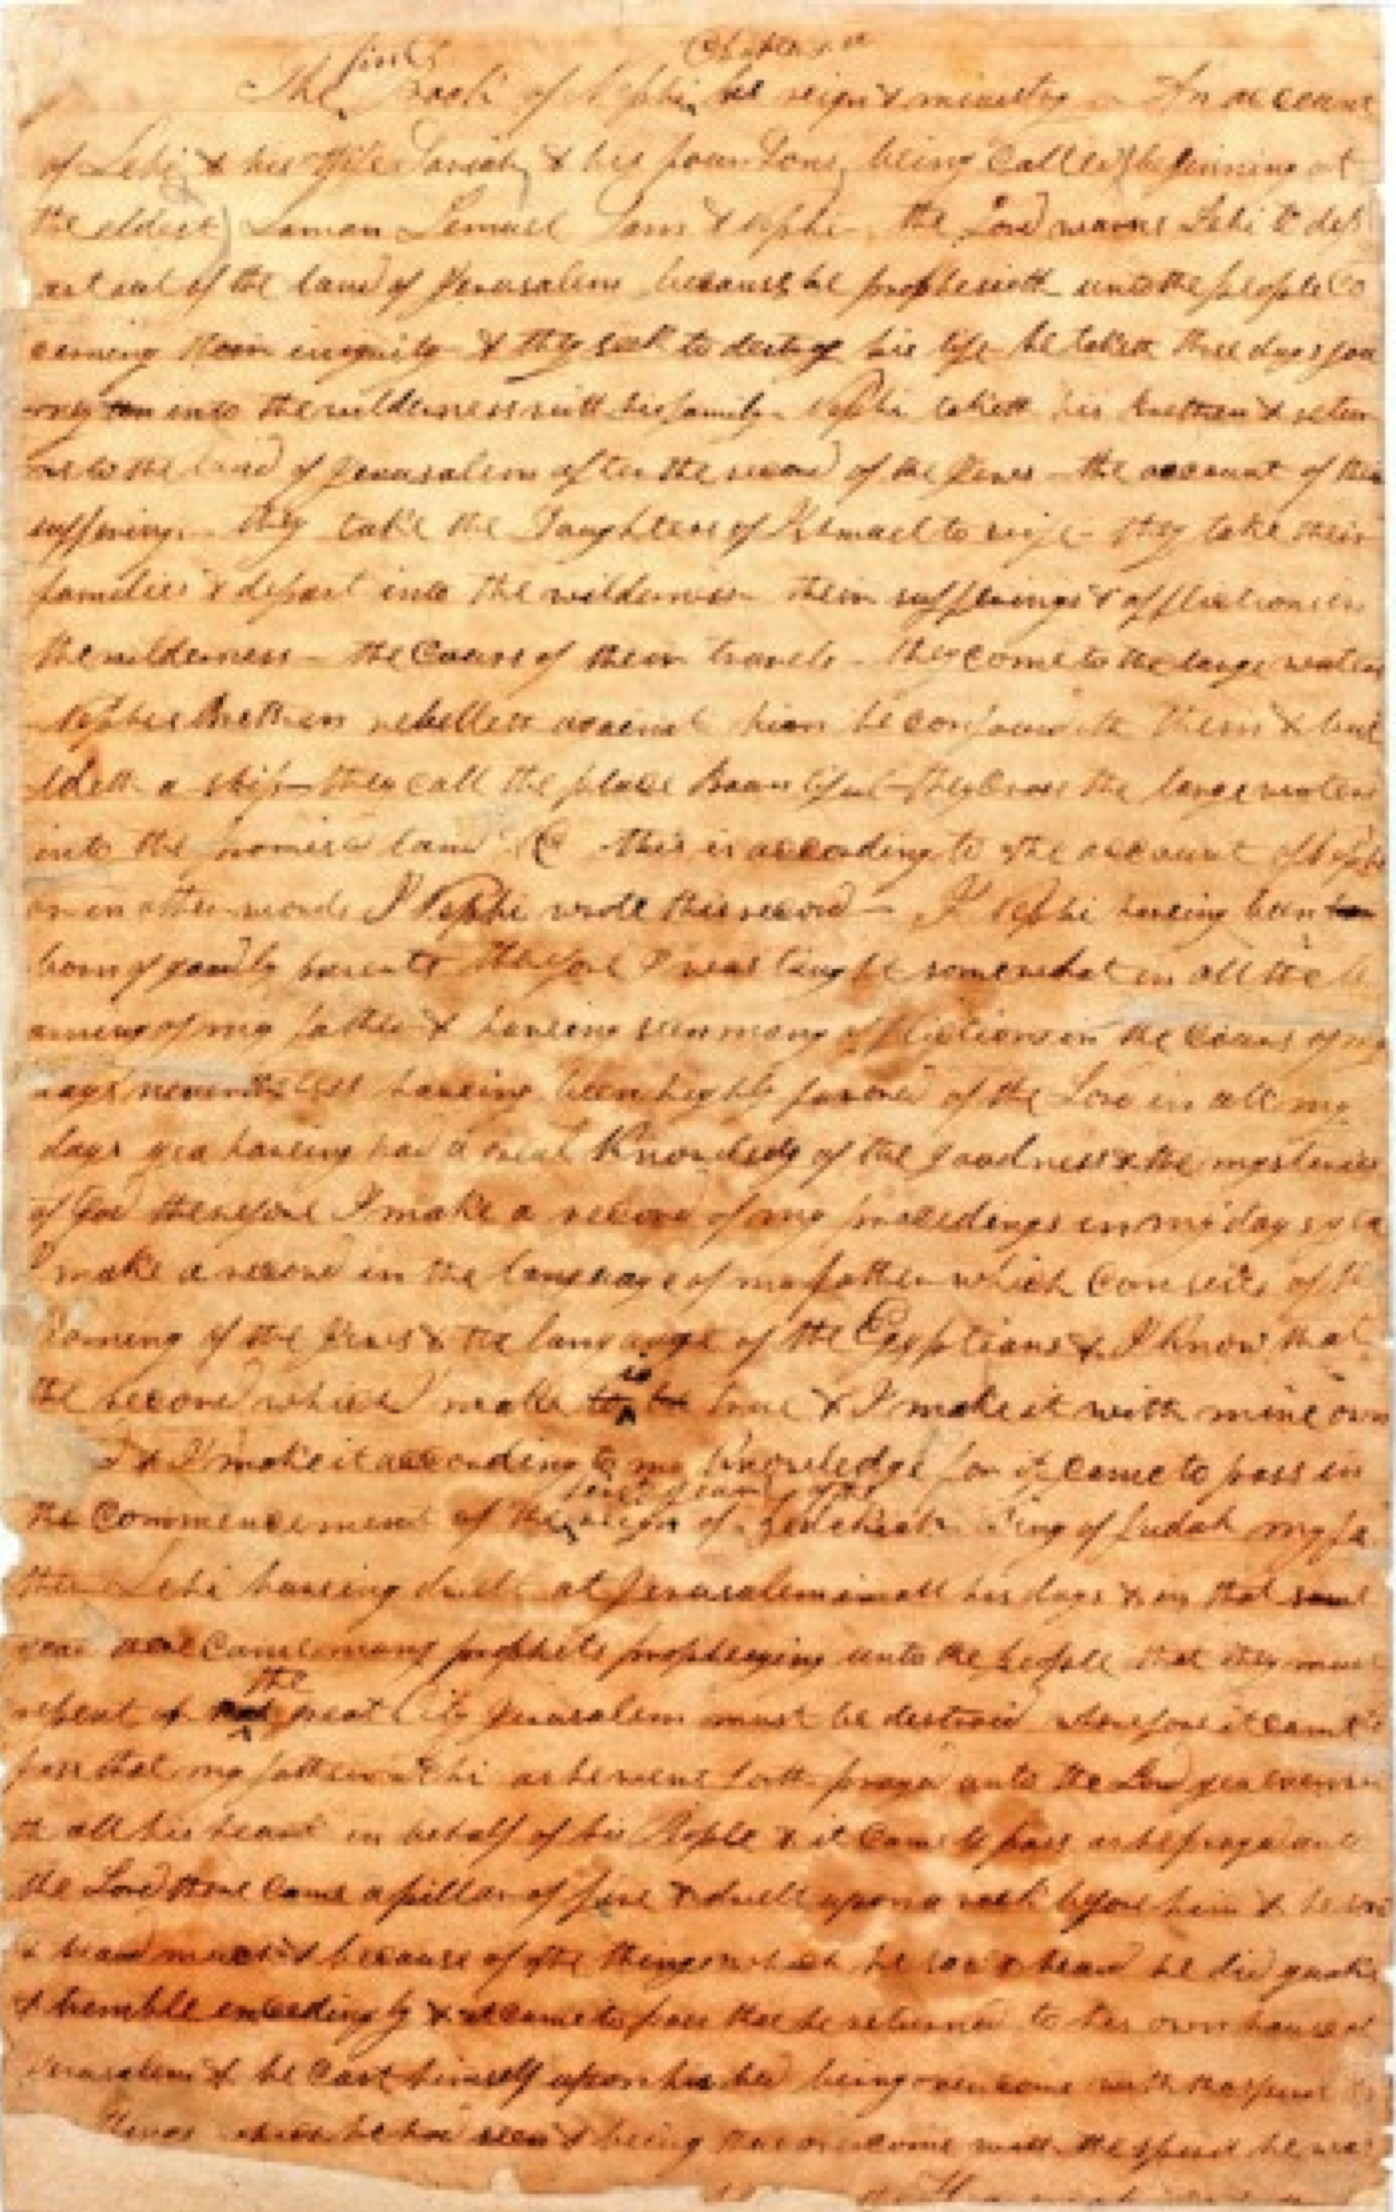 first Chapter 1st
The Book of Nephi his reign & ministry An account
of Lehi & his Wife Sariah & his four Sons being called (beginning at
the eldest) Laman Lemuel Sam & Nephi the Lord warns Lehi to dep
art out of the land of Jerusalem because he prophesieth unto the people co
cerning their iniquity & they seek to destroy his life he taketh three days jou
rney into the wilderness with his family Nephi taketh his brethren & retur
ns to the land of Jerusalem after the record of the Jews — the account of their
sufferings they take the Daughters of Ishmael to wife — they take their
families & depart into the wilderness their sufferings & afflictions in
the wilderness — the cours of their travels — they come to the large waters
Nephis Brethren rebelleth against him he confoundeth them & bui
ldeth a ship — they call the place Bountiful — they cross the large waters
into the promised land &C this is according to the account of Nephi
or in other words I Nephi wrote this record — I Nephi having been
born of goodly parents therefore I was taught somewhat in all the le
arning of my father & having seen many afflictions in the cours of my
days nevertheless having been highly favored of the Lord in all my
days yea having had a great knowledg of the goodness & the mysteries
of God therefore I make a record of my proceedings in my days yea
I make a record in the language of my father which consists of the
learning of the Jews & the language of the Egyptians & I know that
is
the record which I make to be true & I make it with mine own
& I make it according to my knowledge for it came to pass in
first year of the
the commencement of the reign of Zedekiah King of Judah my fa
ther Lehi having dwelt at Jerusalem in all his days & in that same
year there came many prophets prophesying unto the people that they must
the
repent or great City Jerusalem must be destroid wherefore it came to
pass that my father Lehi as he went forth prayed unto the Lord yea even wi
th all his heart in behalf of his People & it came to pass as he prayed unto
the Lord there came a pillar of fire & dwelt upon a rock before him & he saw
& heard much & because of the things which he saw & heard he did quake
& tremble exceedingly & it came to pass that he returned to his own house at
Jerusalem & he cast himself upon his bed being overcome with the spirit &
things which he had seen & being thus overcome with the spirit he was